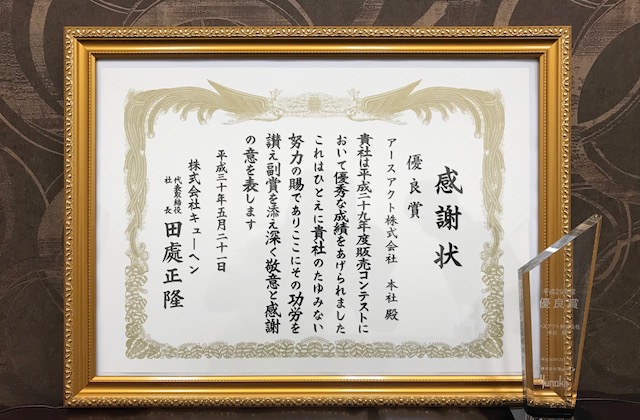 感謝状
優良賞
アースアクト株式会社 本社 殿
貴社は平成二十九年度販売コンテストに
おいて優秀な成績をあげられました
これはひとえに貴社のたゆみない
努力の賜でありここにその功労を
讃え副賞を添え深く敬意と感謝
の意を表します
平成三十年五月二十一日
株式会社キューヘン
代表取締役
社長
田處正隆
優良賞